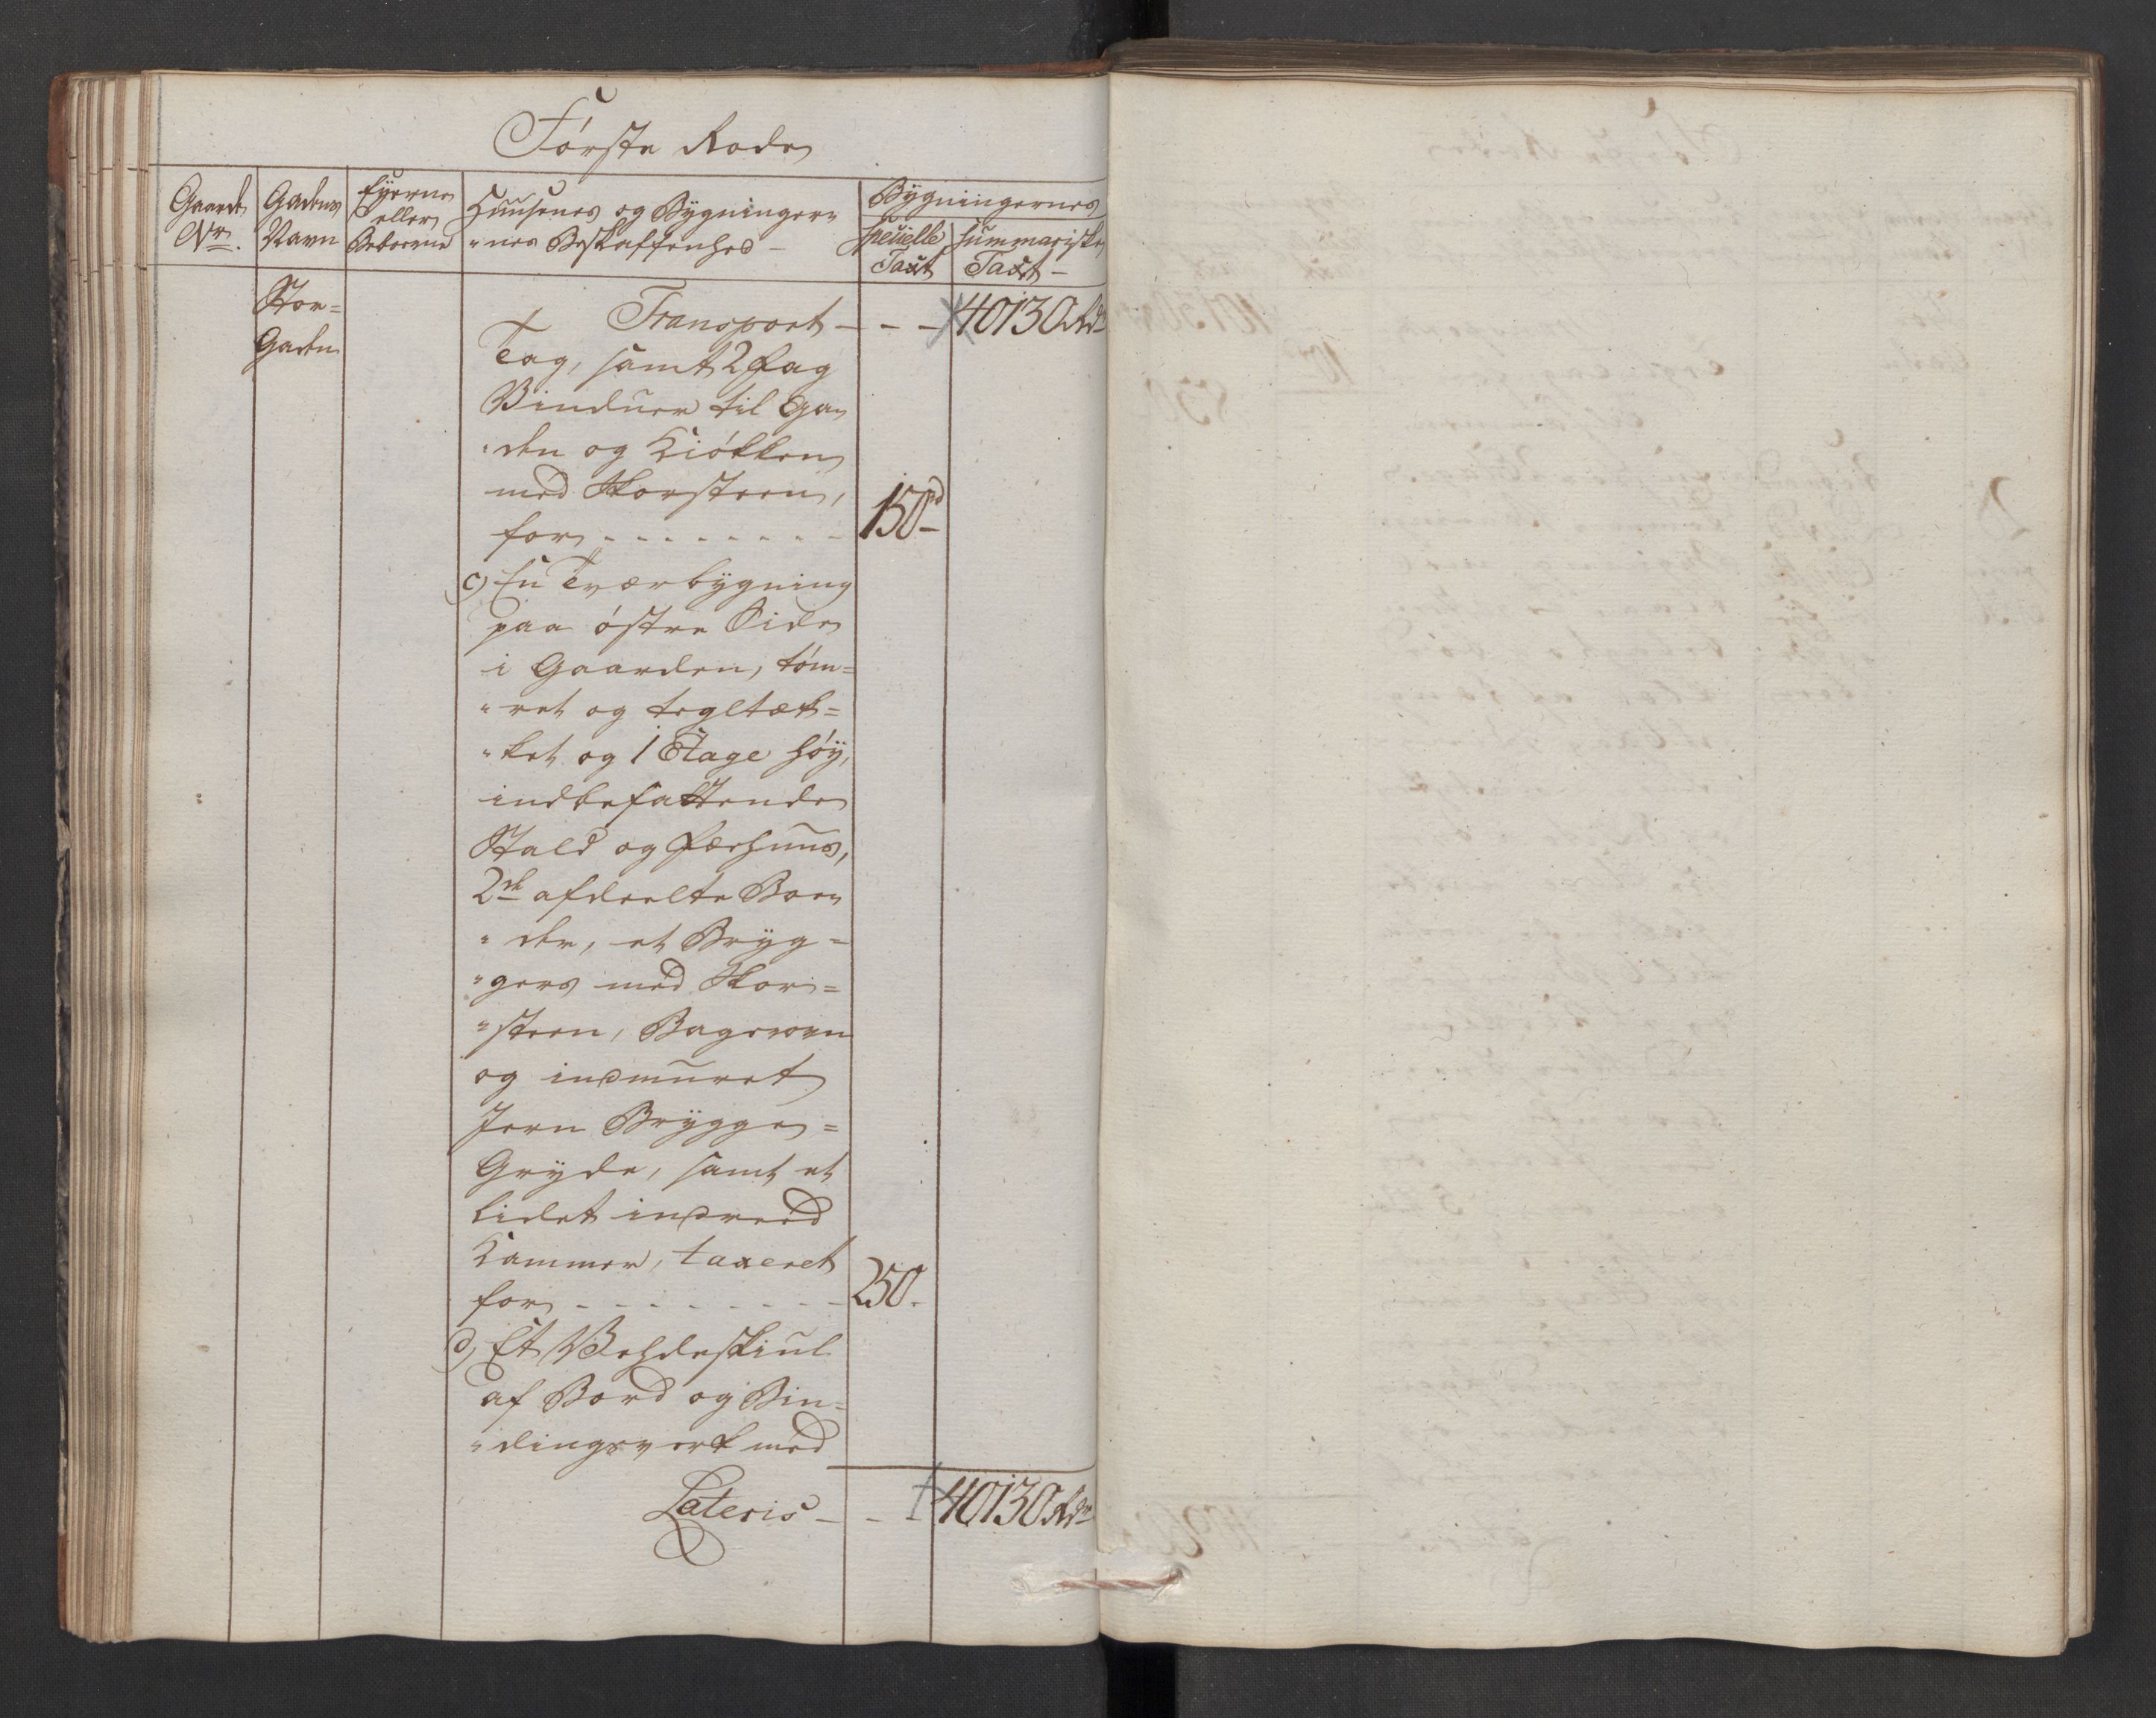 Første Rode
Gaarde Nr. | Gadens Navn | Eyerne eller Beboerne | Huusenes og Bygninger= | Bygningernes
"nes Beskaffenhed — | specielle Taxt | summariske Taxt —
Stor= | Transport — — — 40130 Rdr
Gaden
Tag, samt 2 Fag
Vinduer til Ga=
"den og Kiøkken
med Skorsteen,
for - - - - - - - - 150 rd
c) En Tværbygning
paa østre Side
i Gaarden, tøm=
"ret og tegltæk=
"ket og 1 Etage høy,
indbefattende
Stald og Færhuus,
2de afdeelte Boe=
"der, et Bryg=
"gers med Skor=
"steen, Bagerovn
og indmuret
Jern Brygge=
Gryde, samt et
lidet indreed
Kammer, taxeret
for - - - - - - - - 250.
d) Et Vehdeskiul
af Bord og Bin=
"dingsverk med
Lateris — — 40130 Rdr